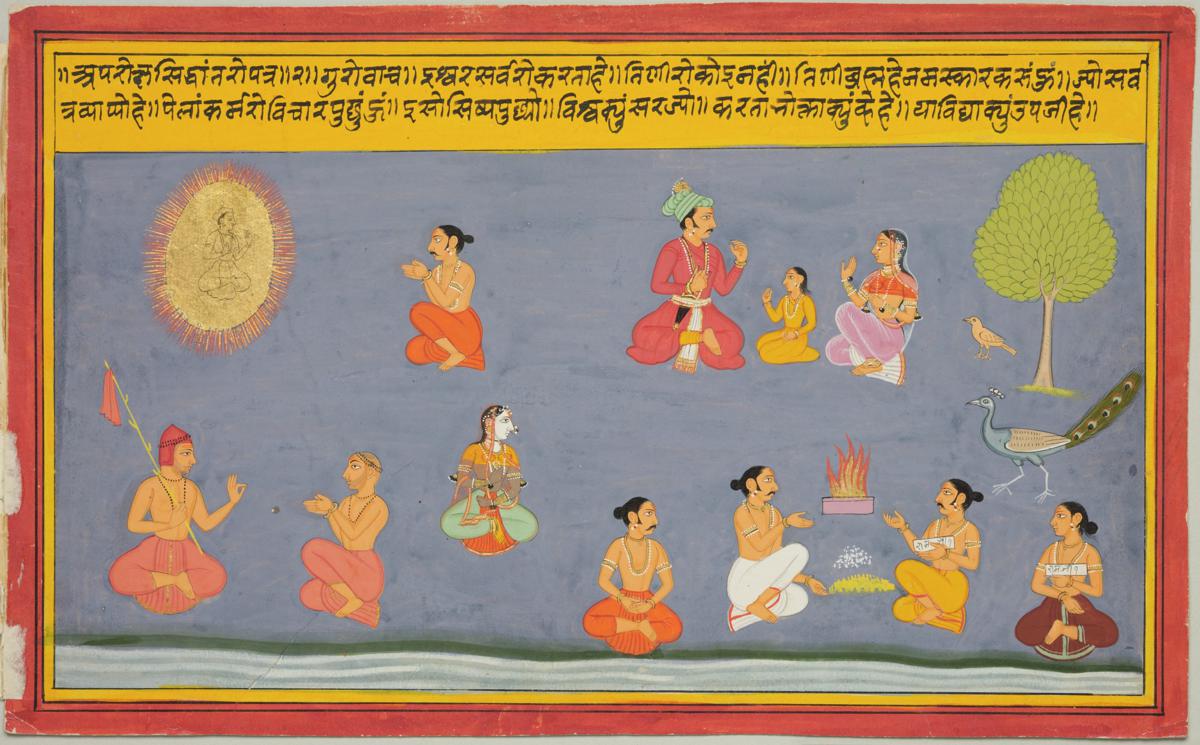 ॥अपरोक्षसिद्धांतरोपत्र॥२॥गुरोवाच॥इश्वरसर्वरोकरताहे॥तिणीरोकोइनहीं॥तिणीब्रह्महेनमस्कारकरुंछुं॥ज्योसर्व
त्रव्याप्योहे॥पेलांकर्मरोविचारपुछुंछुं॥इसोसिष्यपुछ्यो॥विश्वक्युंसरज्यो॥करताभोक्ताक्युंकेहे॥याविद्याक्युंउपजीहे॥